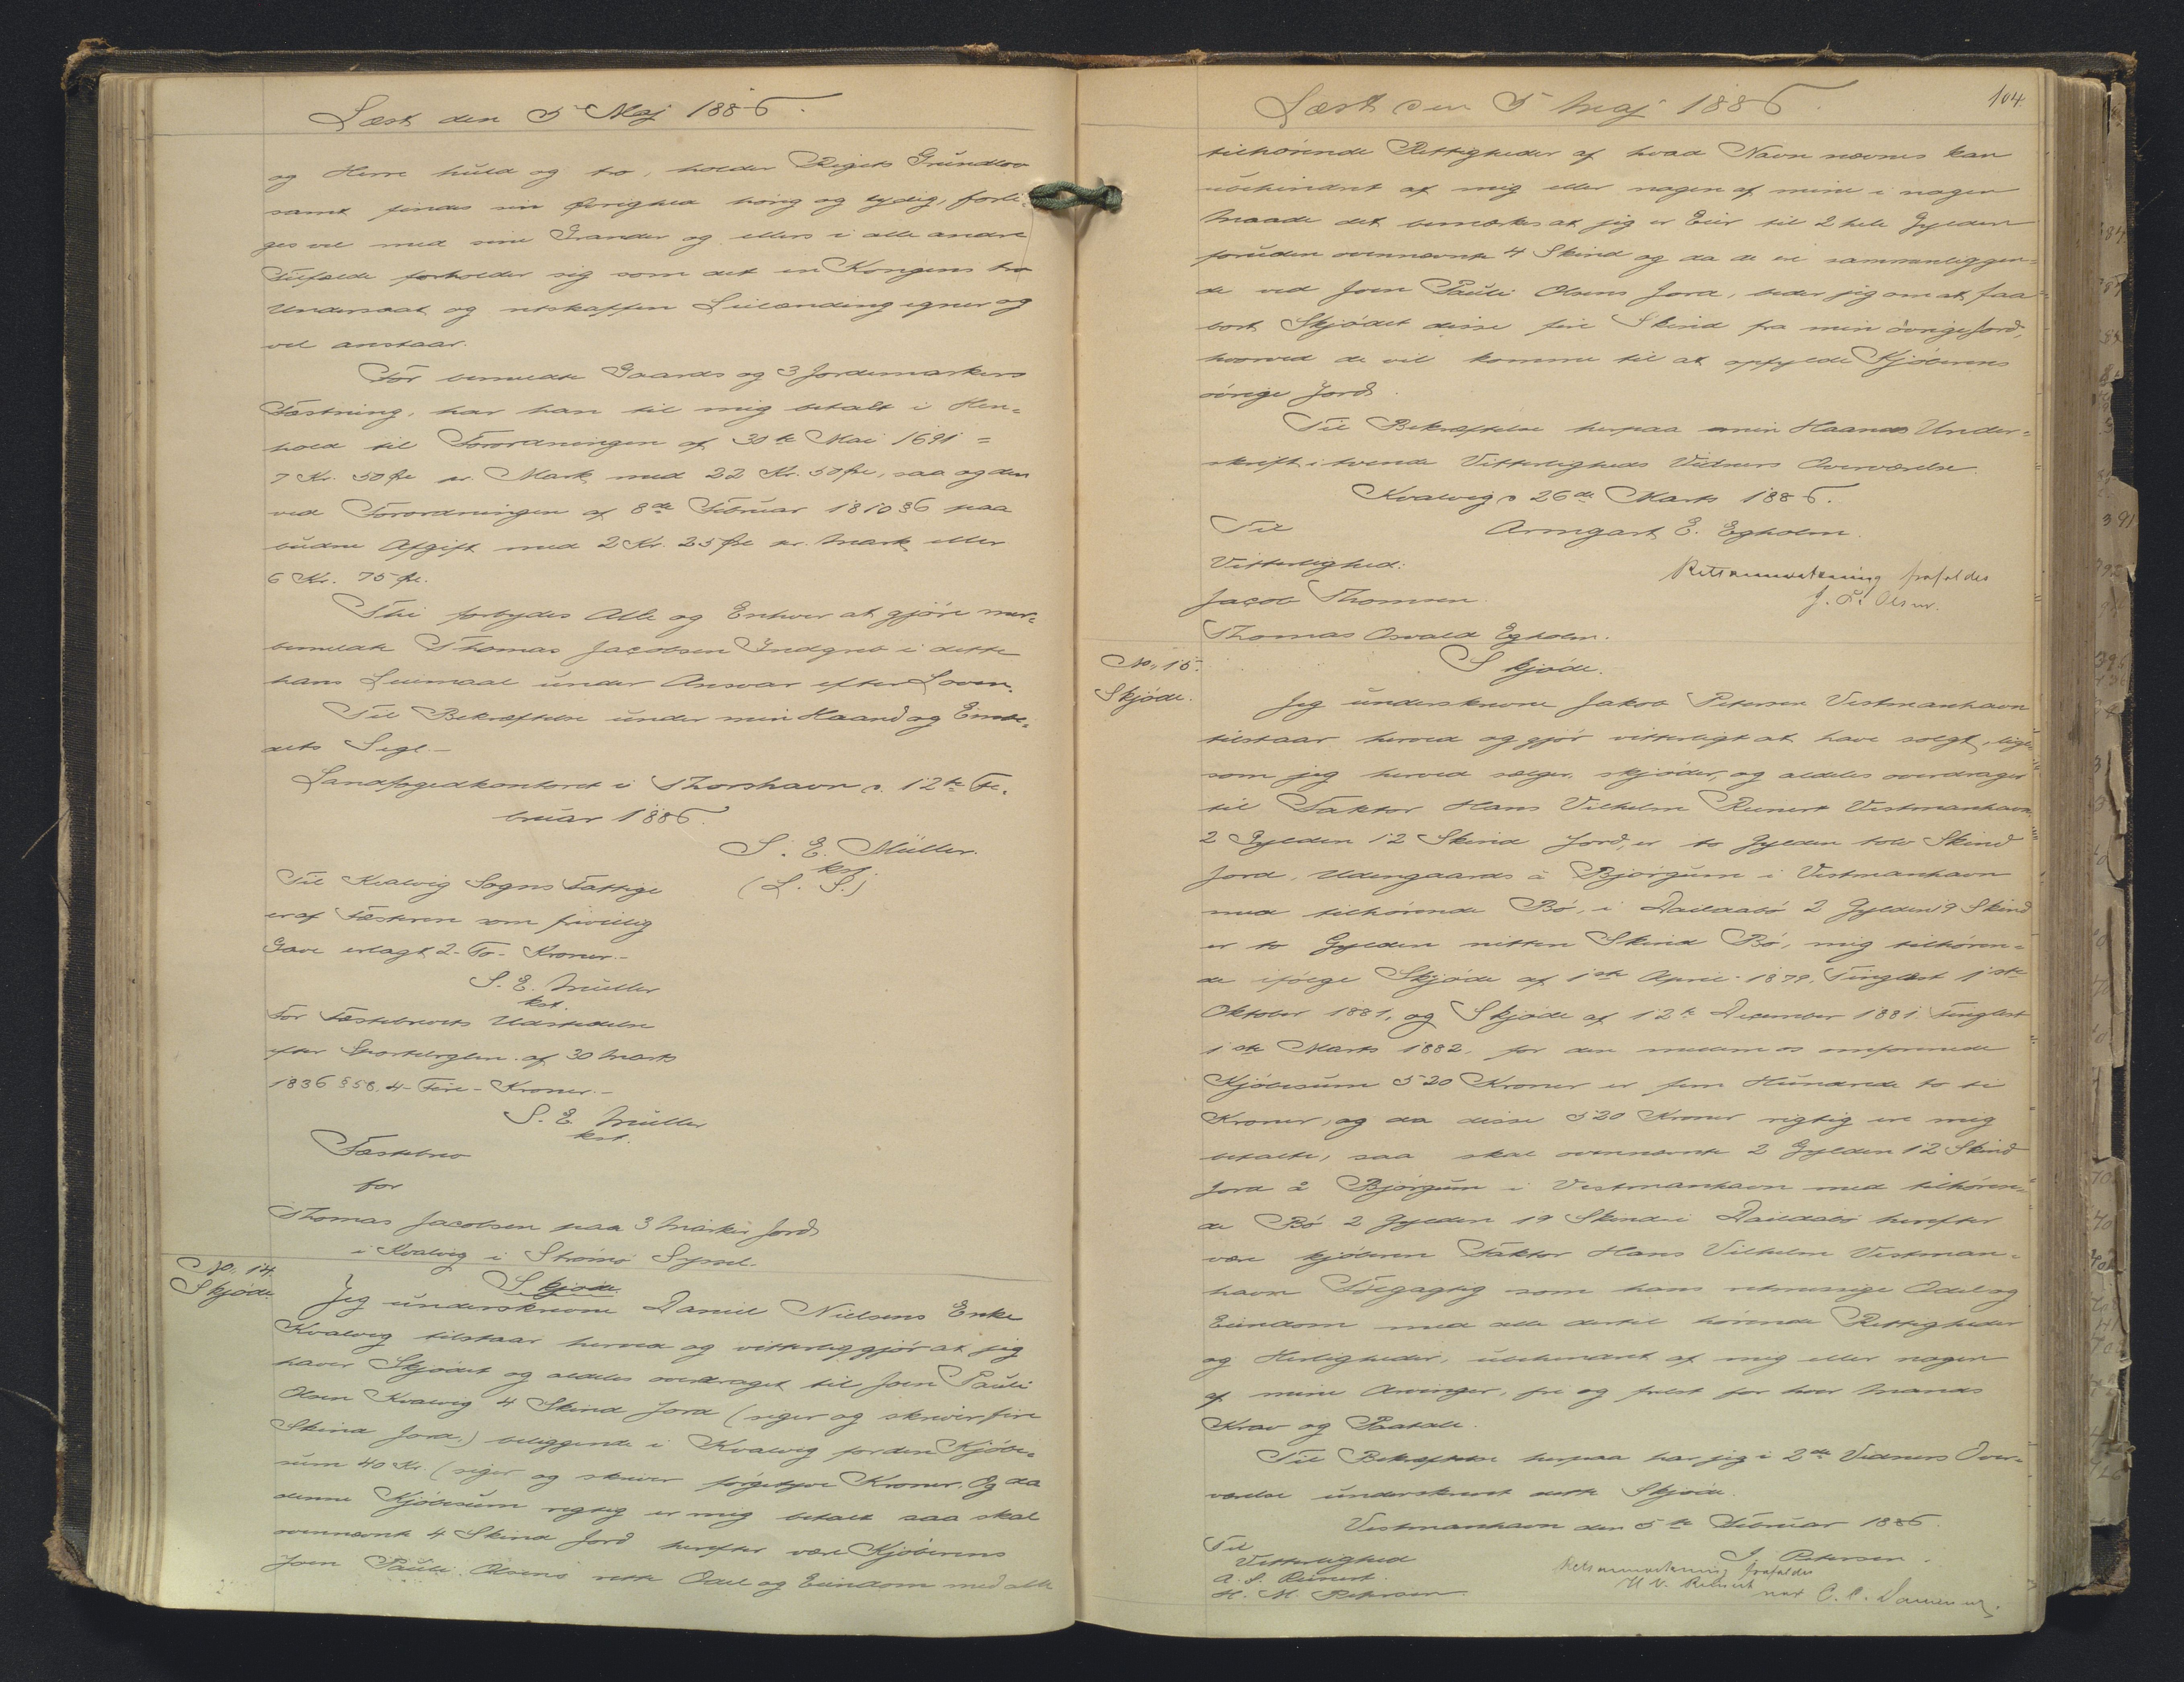 Læst den 5te Maj 1886.
og Herre huld og tro, holder Rigets Grundlov
samt findes sin Øvrighed hørig og lydig, forli-
ges vel med sine Grander og ellers i alle andre
Tilfælde forholder sig som det en Kongens tro
Undersaat og retskaffen Leilænding egner og
vel anstaar.
For bemeldte Gaards og 3 Jordemarkers
Fæstning, har han til mig betalt i Hen-
hold til Forordningen af 30te Mai 1691 =
7 Kr. 50 Øre pr. Mark med 22 Kr. 50 Øre, saa og den
ved Forordningen af 8de Februar 1810 § 6 paa
budne Afgift med 2 Kr. 25 Øre pr. Mark eller
6 Kr. 75 Øre.
Thi forbydes Alle og Enhver at gjöre mer-
bemeldte Thomas Jacobsen Indgreb i dette
hans Leiemaal under Ansvar efter Loven.
Til Bekræftelse under min Haand og Embe-
dets Segl.-
Landfogedkontoret i Thorshavn d. 12te Fe-
bruar 1886.
S. E. Müller.
kst.
(L. S.)
Til Kvalvig Sogns Fattige
er af Fæsteren som frivillig
Gave erlagt 2 - To - Kroner.-
S. E. Müller
kst.
For Fæstebrevets Udstedelse
efter Sportelreglem. af 30 Marts
1836 § 58, 4 - Fire - Kroner.-
S. E. Müller
kst.
Fæstebrev
for
Thomas Jacobsen paa 3 Marker Jord
i Kvalvig i Strömö Syssel.
No. 14.
Skjöde.
Skjöde.
Jeg underskrevne Daniel Nielsens Enke
Kvalvig tilstaar herved og vitterliggjör at jeg
haver Skjödet og aldeles overdraget til Joen Pauli
Olsen Kvalvig 4 Skind Jord (siger og skriver fire
Skind Jord,) beliggende i Kvalvig for den Kjöbe-
sum 40 Kr. (siger og skriver förgetyve Kroner. Og da
denne Kjöbesum rigtig er mig betalt saa skal
ovennævnte 4 Skind Jord herefter være Kjöberens
Joen Pauli Olsens rette Odel og Eiendom med alle
Læst den 5 Maj 1886.
104.
tilhörende Rettigheder af hvad Navn nævnes kan
ubehindret af mig eller nogen af mine i nogen
Maade det bemærkes at jeg er Eier til 2 hele Gylden
foruden ovennævnte 4 Skind og da de ere sammenliggen-
de ved Joen Pauli Olsens Jord, beder jeg om at faa
bort Skjödet disse fire Skind fra min övrige Jord,
hvorved de vil komme til at opfylde Kjöberens
övrige Jord.
Til Bekræftelse herpaa min Haands Under-
skrift i tvende Vitterligheds Vidners Overværelse.
Kvalvig d 26de Marts 1886.
Til
Armgart E. Egholm.
Vitterlighed:
Retsanmærkning frafaldes
Jacob Thomsen.
J. P. Olsen.
Thomas Osvald Egholm.
No. 15.
Skjöde.
Skjöde.
Jeg underskrevne Jakob Petersen Vestmanhavn
tilstaar herved og gjör vitterligt at have solgt, lige-
som jeg herved sælger, skjöder, og aldeles overdrager
til Faktor Hans Vilhelm Reinert Vestmanhavn
2 Gylden 12 Skind Jord, er to Gylden tolv Skind
Jord, Udengaards á Bjørgum i Vestmanhavn
med tilhörende Bö, i Daildabö 2 Gylden 19 Skind
er to Gylden nitten Skind Bö, mig tilhören-
de ifölge Skjöde af 1ste April 1879, Tinglæst 1ste
Oktober 1881, og Skjöde af 12te December 1881 tinglæst
1ste Marts 1882, for den mellem os omforenede
Kjöbesum 520 Kroner er fem Hundrede to ti
Kroner, og da disse 520 Kroner rigtig ere mig
betalte, saa skal ovennævnte 2 Gylden 12 Skind
Jord á Bjørgum i Vestmanhavn med tilhören-
de Bö 2 Gylden 19 Skind i Daildabö herefter
være kjöberen Faktor Hans Vilhelm Vestman-
havn Fölgagtig som hans retmæssige Odel og
Eiendom med alle dertil hörende Rettigheder
og Herligheder, ubehindret af mig eller nogen
af mine Arvinger, fri og frelst for hver Mands
Krav og Paatale.
Til Bekræftelse herpaa har jeg i 2de Vidners Over-
værelse underskrevet dette Skjöde.
Vestmanhavn den 5te Februar 1886.
Til
J. Petersen.
Vitterlighed
Retsanmærkning frafaldes
A. S. Reinert.
H. V. Reinert
H. M. Petersen